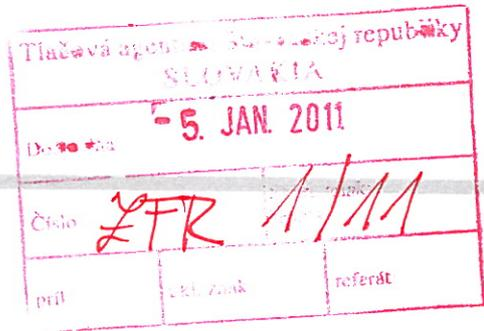 Tlačová agentúra Slovenskej republiky
SLOVAKIA
-5. JAN. 2011
Číslo ZFR 1/11
príl znak referát